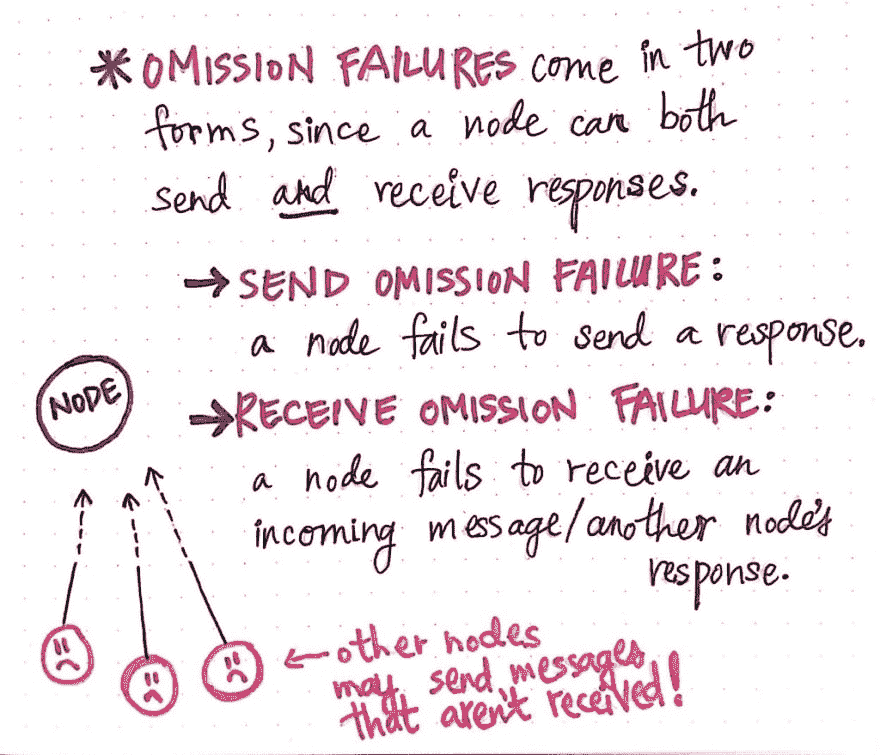 * OMISSION FAILURES come in two
forms, since a node can both
send and receive responses.
→ SEND OMISSION FAILURE:
a node fails to send a response.
NODE
→ RECEIVE OMISSION FAILURE:
a node fails to receive an
incoming message/another node's
response.
← other nodes
may send messages
that aren't received!